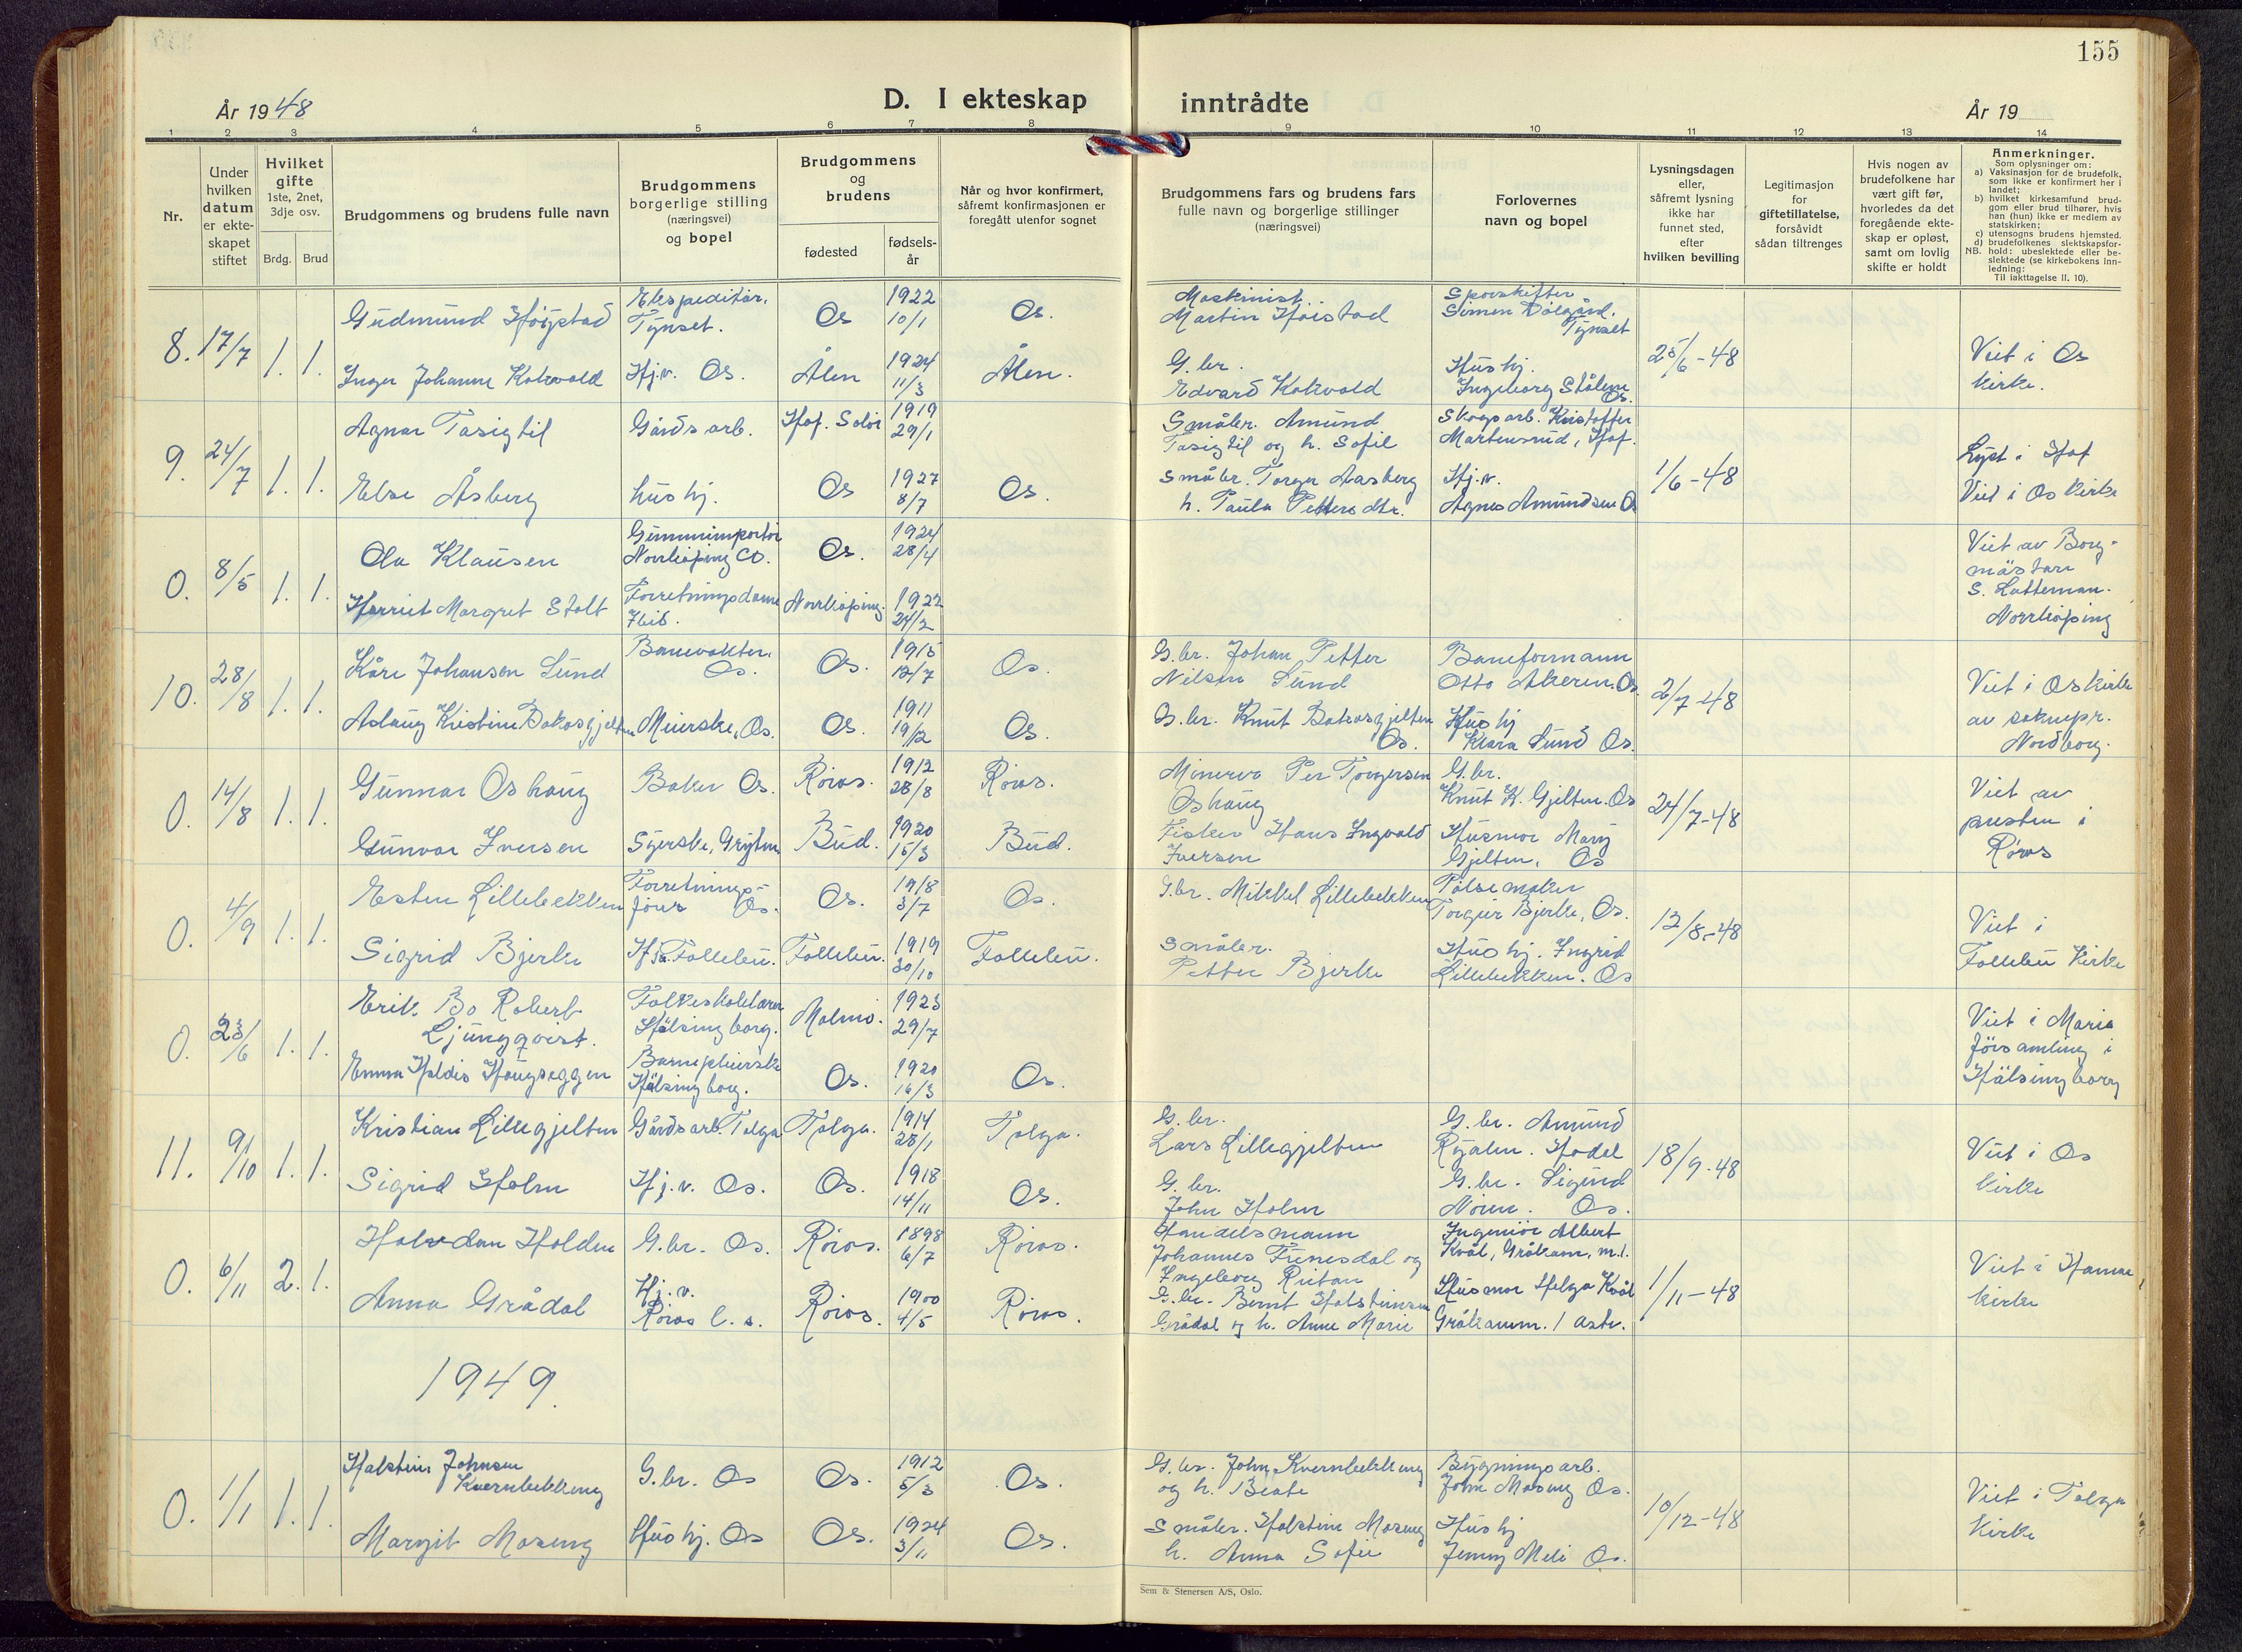 155
År 1948
D. I ekteskap inntrådte
År 19
1 2 3 4 5 6 7 8 9 10 11 12 13 14
Nr.
Under
hvilken
datum
er ekte-
skapet
stiftet
Hvilket
gifte
1ste, 2net,
3dje osv.
Brdg. Brud
Brudgommens og brudens fulle navn
Brudgommens
borgerlige stilling
(næringsvei)
og bopel
Brudgommens
og
brudens
fødested
fødsels-
år
Når og hvor konfirmert,
såfremt konfirmasjonen er
foregått utenfor sognet
Brudgommens fars og brudens fars
fulle navn og borgerlige stillinger
(næringsvei)
Forlovernes
navn og bopel
Lysningsdagen
eller,
såfremt lysning
ikke har
funnet sted,
efter
hvilken bevilling
Legitimasjon
for
giftetillatelse,
forsåvidt
sådan tiltrenges
Hvis nogen av
brudefolkene har
vært gift før,
hvorledes da det
foregående ekte-
skap er opløst,
samt om lovlig
skifte er holdt
Anmerkninger.
Som oplysninger om:
a) Vaksinasjon for de brudefolk,
som ikke er konfirmert her i
landet;
b) hvilket kirkesamfund brud-
gom eller brud tilhører, hvis
han (hun) ikke er medlem av
statskirken;
c) utensogns brudens hjemsted.
d) brudefolkenes slektskapsfor-
NB. hold: ubeslektede eller be-
slektede (se kirkebokens inn-
ledning:
Til iakttagelse II. 10).
8. 17/7 1. 1.
Gudmund Høistad
Ekspeditør.
Tynset.
Os
1922
10/1
Os.
Maskinist.
Martin Høistad
Simen Dølgård.
Tynset
25/6-48
Viet i Os
kirke.
Inger Johanne Kokvold
Hj.v. Os.
Ålen
1924
11/3
Ålen.
G.br.
Edvard Kokvold
Hushj.
Ingeborg Stålene
Os.
9. 24/7 1. 1.
Agnar Tasigtil
Gårdsarb.
Hof. Solør
1919
29/1
Småbr. Amund
Tasigtil og h. Sofie
Skogsarb. Kristoffer
Martensrud, Hof.
1/6-48
Lyst i Hof
Viet i Os kirke
Else Åsberg
hushj.
Os
1927
8/7
Os.
Småbr. Torger Aasberg
h. Paula Pettersdtr.
Hj.v.
Agnes Amundsen Os
0. 8/5 1. 1.
Ola Klausen
Gummimportør
Norrkøping Co.
Os.
1924
28/4
Viet av Borg-
mästare
S. Latteman.
Norrkøping
Harriet Margret Stolt
Forretningsdame
Ibid.
Norrkøping.
1922
24/2
10. 28/8 1. 1.
Kåre Johansen Lund
Banevokter.
Os.
Os.
1915
12/7
Os.
G.br. Johan Petter
Nilsen Lund
Baneformann
Otto Akeren. Os
2/7-48
Viet i Os kirke
av soknepr.
Nordborg.
Aslaug Kristine Bakosgjelten
Meierske, Os.
Os.
1911
19/2
Os.
G.br. Knut Bakosgjelten
Os.
Hushj
Klara Lund Os.
0. 14/8 1. 1.
Gunnar Oshaug
Baker Os.
Røros.
1912
28/8
Røros.
Minerer Per Torgersen
Oshaug
G.br.
Knut K. Gjelten. Os
24/7-48
Viet av
presten i
Røros
Gunvor Iversen
Syerske, Grytten
Bud.
1920
15/3
Bud.
Fisker Hans Ingvald
Iversen
Husmor Mary
Gjelten, Os
0. 4/9 1. 1.
Esten Lillebekken
Forretnings-
fører Os.
Os.
1918
3/7
Os.
G.br. Mikkel Lillebekken
Pølsemaker
Torgeir Bjerke, Os.
12/8-48
Viet i
Follebu Kirke
Sigrid Bjerke
Follebu.
Follebu.
1919
30/10
Follebu.
Småbr.
Petter Bjerke
Hushj. Ingrid
Lillebekken. Os
0. 23/6 1. 1.
Erik Bo Robert
Ljungqvist.
Folkeskolelærer
Hälsingborg.
Malmø.
1923
29/7
Viet i Maria
församling i
Hälsingborg
Emma Haldis Haugseggen
Barnepleierske
Hälsingborg.
Os.
1920
16/3
Os.
11. 9/10 1. 1.
Kristian Lillegjelten
Gårdsarb. Tolga
Tolga.
1914
28/1
Tolga.
G.br.
Lars Lillegjelten
G.br. Amund
Ryalen. Hodal
18/9-48
Viet i Os
kirke
Sigrid Holm
Hj.v. Os.
Os.
1918
14/11
Os.
G.br.
John Holm
G.br. Sigurd
Noren. Os.
0. 6/11 2. 1.
Halvdan Holden
G.br. Os.
Røros.
1898
6/7
Røros.
Handelsmann
Johannes Funesdal og
Ingeborg Ruitan
Ingeniør Albert
Kvål, Gråkamm. m.l.
1/11-48
Viet i Hamar
kirke
Anna Grådal
Hj.v.
Røros l.s.
Røros.
1900
4/5
Røros.
G.br. Bernt Holsteinsen
Grådal og h. Anne Marie
Husmor Helga Kvål
Gråkamm. / Astv.
1949.
0. 1/1 1. 1.
Halstein Johnsen
Kvernbekkeng
G.br. Os
Os.
1912
5/3
Os.
G.br. John Kvernbekkeng
og h. Beate
Bygningsarb.
John Moseng Os.
10/12-48
Viet i Tolga
Kirke
Margit Moseng
Hushj. Os
Os.
1924
3/11
Os.
Småbr. Halstein Moseng
h. Anna Sofie
Hushj
Jenny Meli Os.
Sem & Stenersen A/S, Oslo.